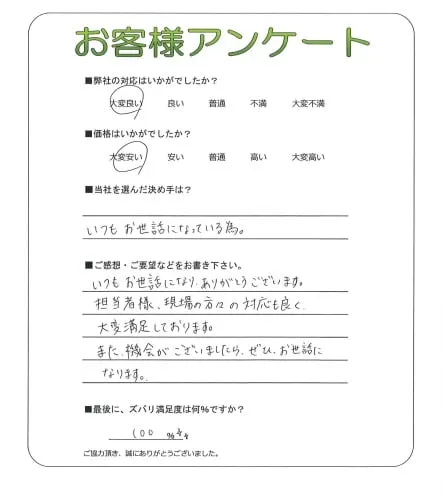 お客様アンケート
■弊社の対応はいかがでしたか?
大変良い 良い 普通 不満 大変不満
■価格はいかがでしたか?
大変安い 安い 普通 高い 大変高い
■当社を選んだ決め手は?
いつもお世話になっている為。
■ご感想・ご要望などをお書き下さい。
いつもお世話になり、ありがとうございます。
担当者様、現場の方々の対応も良く
大変満足しております。
また、機会がございましたら、ぜひ、お世話に
なります。
■最後に、ズバリ満足度は何%ですか?
100 %
ご協力頂き、誠にありがとうございました。